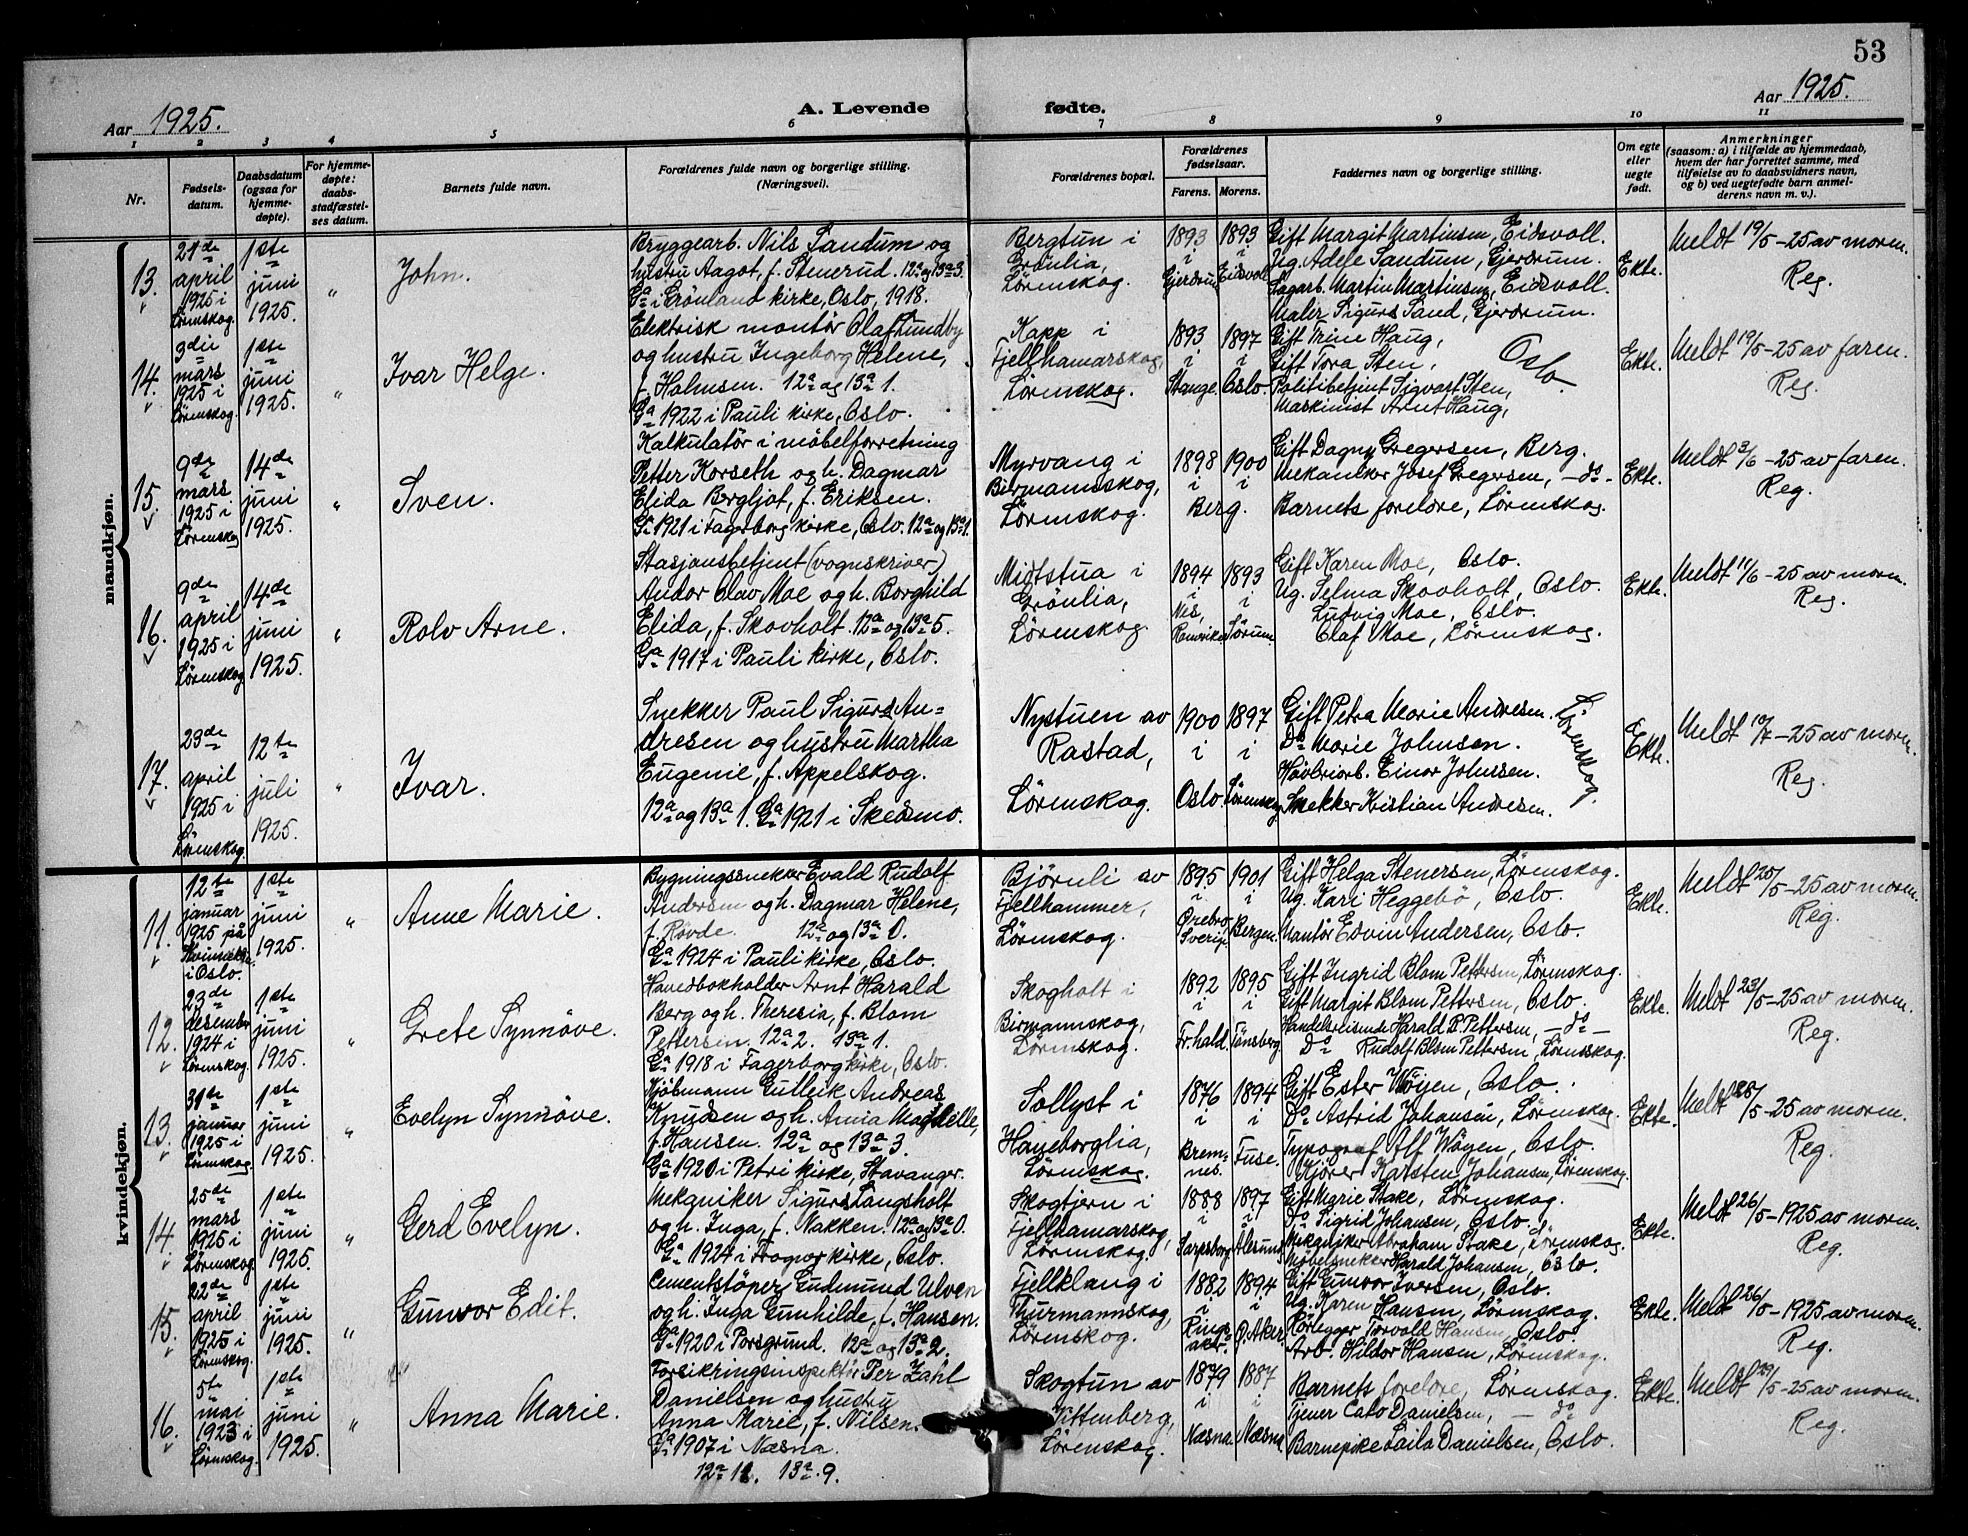 53
Aar 1925.
A. Levende fødte.
Aar 1925.
1 2 3 4 5 6 7 8 9 10 11
Nr.
Fødsels-
datum.
Daabsdatum
(ogsaa for
hjemme-
døpte).
For hjemme-
døpte:
daabs-
stadfæstel-
ses datum.
Barnets fulde navn.
Forældrenes fulde navn og borgerlige stilling.
(Næringsvei).
Forældrenes bopæl.
Forældrenes
fødselsaar.
Farens. Morens.
Faddernes navn og borgerlige stilling.
Om egte
eller
uegte
født.
Anmerkninger
(saasom: a) i tilfælde av hjemmedaab,
hvem der har forrettet samme, med
tilføielse av to daabsvidners navn,
og b) ved uegtefødte barn anmel-
derens navn m. v.).
mandkjøn.
13.
21de
april
1925 i
Lørenskog.
1ste
juni
1925.
"
John.
Bryggearb. Nils Sandum og
hustru Aagot, f. Stenerud. 12a og 13a 3.
Ga i Grönland kirke, Oslo, 1918.
Bergtun i
Grönlia,
Lörenskog.
1893
i
Gjerdrum
1893
i
Eidsvoll
Gift Margit Martinsen, Eidsvoll.
Ug. Adele Sandum, Gjerdrum.
Sagarb. Martin Martinsen, Eidsvoll.
Maler Sigurd Sand, Gjerdrum.
Ekte.
Meldt 19/5-25 av moren.
Reg.
14.
3die
mars
1925 i
Lörenskog.
1ste
juni
1925.
"
Ivar Helge.
Elektrisk montör Olaf Sundby
og hustru Ingeborg Helene,
f. Holmsen. 12a og 13a 1.
Ga 1922 i Pauli kirke, Oslo.
Kapp i
Fjellhamarskog,
Lörenskog.
1893
i
Stange
1897
i
Oslo.
Gift Trine Haug,
Gift Tora Sten,
Politibetjent Sigvart Sten,
Maskinist Arnt Haug,
Oslo.
Ekte.
Meldt 19/5-25 av faren.
Reg.
15.
9de
mars
1925 i
Lörenskog
14de
juni
1925.
"
Sven.
Kalkulatör i möbelforretning
Petter Korseth og h. Dagmar
Elida Bergljot, f. Eriksen.
Ga 1921 i Fagerborg kirke, Oslo. 12a og 13a 1.
Myrvang i
Birmannsskog,
Lörenskog.
1898
i
1900
i
Berg.
Gift Dagny Gregersen, Berg.
Mekaniker Josef Gregersen, -do-
Barnets foreldre, Lörenskog.
Ekte.
Meldt 3/6-25 av faren.
Reg.
16.
9de
april
1925 i
Lörenskog
14de
juni
1925.
"
Rolv Arne.
Stasjonsbetjent (vognskriver)
Andor Olav Moe og h. Borghild
Elida, f. Skovholt. 12a og 13a 5.
Ga 1917 i Pauli kirke, Oslo.
Midtstua i
Grönlia,
Lörenskog.
1894
i
Nes,
Romerike
1893
i
Sörum.
Gift Karen Moe, Oslo.
Ug. Selma Skovholt, Oslo.
Ludvig Moe, Oslo.
Olaf Moe, Lörenskog.
Ekte.
Meldt 11/6-25 av moren.
Reg.
17.
23de
april
1925 i
Lörenskog.
12te
juli
1925.
"
Ivar.
Snekker Paul Sigurd An-
dresen og hustru Martha
Eugenie, f. Appelskog.
12a og 13a 1. Ga 1921 i Skedsmo.
Nystuen av
Rastad,
Lörenskog.
1900
i
Oslo.
1897
i
Lörenskog.
Gift Petra Marie Andresen.
Do Marie Johnsen.
Hövleriarb. Einar Johnsen.
Snekker Kristian Andresen.
Lörenskog.
Ekte.
Meldt 10/7-25 av moren.
Reg.
kvindekjøn.
11.
12te
januar
1925 på
Kvinnekl.
i Oslo.
1ste
juni
1925.
"
Anne Marie.
Bygningssnekker Evald Rudolf
Andersen og h. Dagmar Helene,
f. Rövde. 12a og 13a 0.
Ga 1924 i Pauli kirke, Oslo.
Björnli av
Fjellhammer,
Lörenskog.
1895
i
Örebro
Sverige
1901
i
Bergen.
Gift Helga Stenersen, Lörenskog.
Ug. Kari Heggebö, Oslo.
Montör Edvin Andersen, Oslo.
Ekte.
Meldt 20/5-25 av moren.
Reg.
12.
23de
desember
1924 i
Lörenskog.
1ste
juni
1925.
"
Grete Synnöve.
Hovedbokholder Arnt Harald
Berg og h. Theresia, f. Blom
Pettersen. 12a 2. 13a 1.
Ga 1918 i Fagerborg kirke, Oslo.
Skogholt i
Birmannskog,
Lörenskog.
1892
i
Fr.hald.
1895
i
Tönsberg.
Gift Ingrid Blom Pettersen, Lörenskog.
Gift Margit Blom Pettersen, Oslo.
Handelsreisende Harald B. Pettersen, -do-
Do Rudolf Blom Pettersen, Lörenskog.
Ekte.
Meldt 23/5-25 av moren.
Reg.
13.
31te
januar
1925 i
Lörenskog
1ste
juni
1925.
"
Evelyn Synnöve.
Kjöbmann Gulleik Andreas
Knudsen og h. Anna Magdelle,
f. Hansen. 12a og 13a 3.
Ga 1920 i Petri kirke, Stavanger.
Sollyst i
Haneborglia,
Lörenskog.
1876
i
Brem-
nes.
1894
i
Fuse.
Gift Ester Wöyen, Oslo.
Do Astrid Johansen, Lörenskog.
Typograf Alf Wöyen, Oslo.
Kjörer Karsten Johansen, Lörenskog.
Ekte.
Meldt 25/5-25 av moren.
Reg.
14.
25de
mars
1925 i
Lörenskog
1ste
juni
1925.
"
Gerd Evelyn.
Mekaniker Sigurd Langsholt
og h. Inga, f. Nakken. 12a og 13a 0.
Ga 1924 i Frogner kirke, Oslo.
Skogtjern i
Fjellhamarskog,
Lörenskog.
1888
i
Sarpsborg
1897
i
Ålesund
Gift Marie Stake, Lörenskog.
Do Sigrid Johansen, Oslo.
Mekaniker Abraham Stake, Lörenskog.
Möbelsnekker Harald Johansen, Oslo.
Ekte.
Meldt 26/5-1925 av moren.
Reg.
15.
22de
april
1925 i
Lörenskog.
1ste
juni
1925.
"
Gunvor Edit.
Cementstöper Gudmund Ulven
og h. Inga Gunhilde, f. Hansen.
Ga 1920 i Porsgrund. 12a og 13a 2.
Fjellklang i
Thurmannskog,
Lörenskog.
1882
i
Rings-
aker.
1894
i
Ö. Aker.
Gift Gunvor Iversen, Oslo.
Ug. Karen Hansen, Lörenskog.
Rörlegger Torvald Hansen, Oslo.
Arb. Hildor Hansen, Lörenskog.
Ekte.
Meldt 26/5-1925 av moren.
Reg.
16.
5te
mai
1923 i
Lörenskog.
1ste
juni
1925.
"
Anna Marie.
Forsikringsinspektör Per Zahl
Danielsen og hustru
Anna Marie, f. Nilsen.
Ga 1907 i Næsna.
12a 12. 13a 9.
Skogtun av
Vittenberg,
Lörenskog.
1879
i
Næsna.
1887
i
Næsna
Barnets foreldre, Lörenskog.
Tjener Cato Danielsen, -do-
Barnepike Laila Danielsen, Oslo.
Ekte.
Meldt 29/5-25 av moren.
Reg.